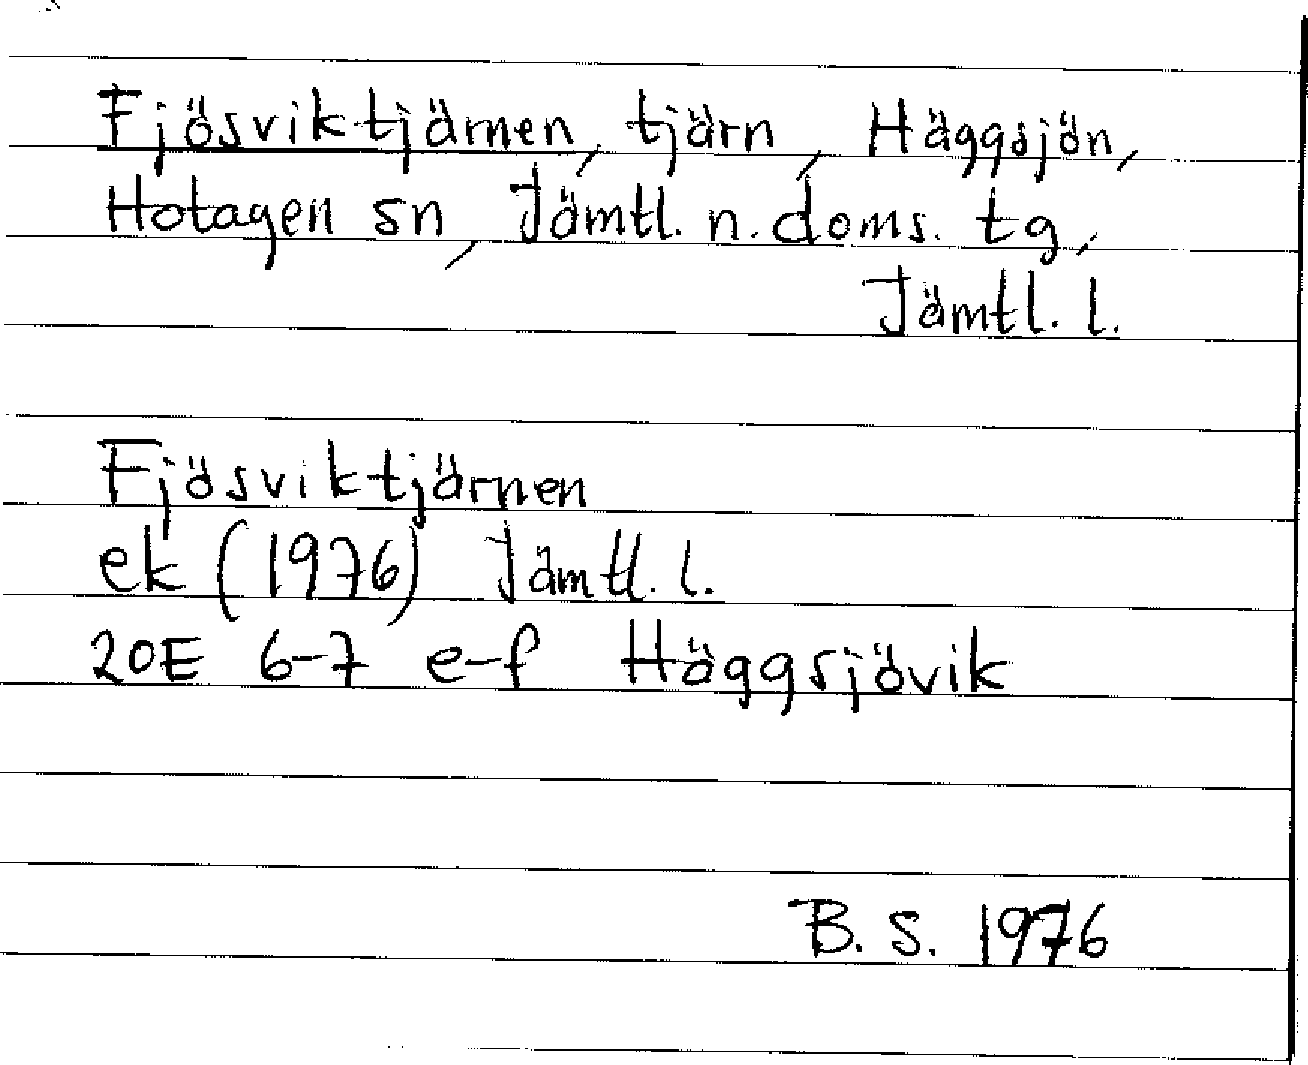 Fjösviktjärnen, tjärn, Häggsjön,
Hotagen sn, Jämtl. n. doms. tg,
Jämtl. l.
Fjösviktjärnen
ek (1976) Jämtl. l.
20E 6-7 e-f Häggsjövik
B. S. 1976